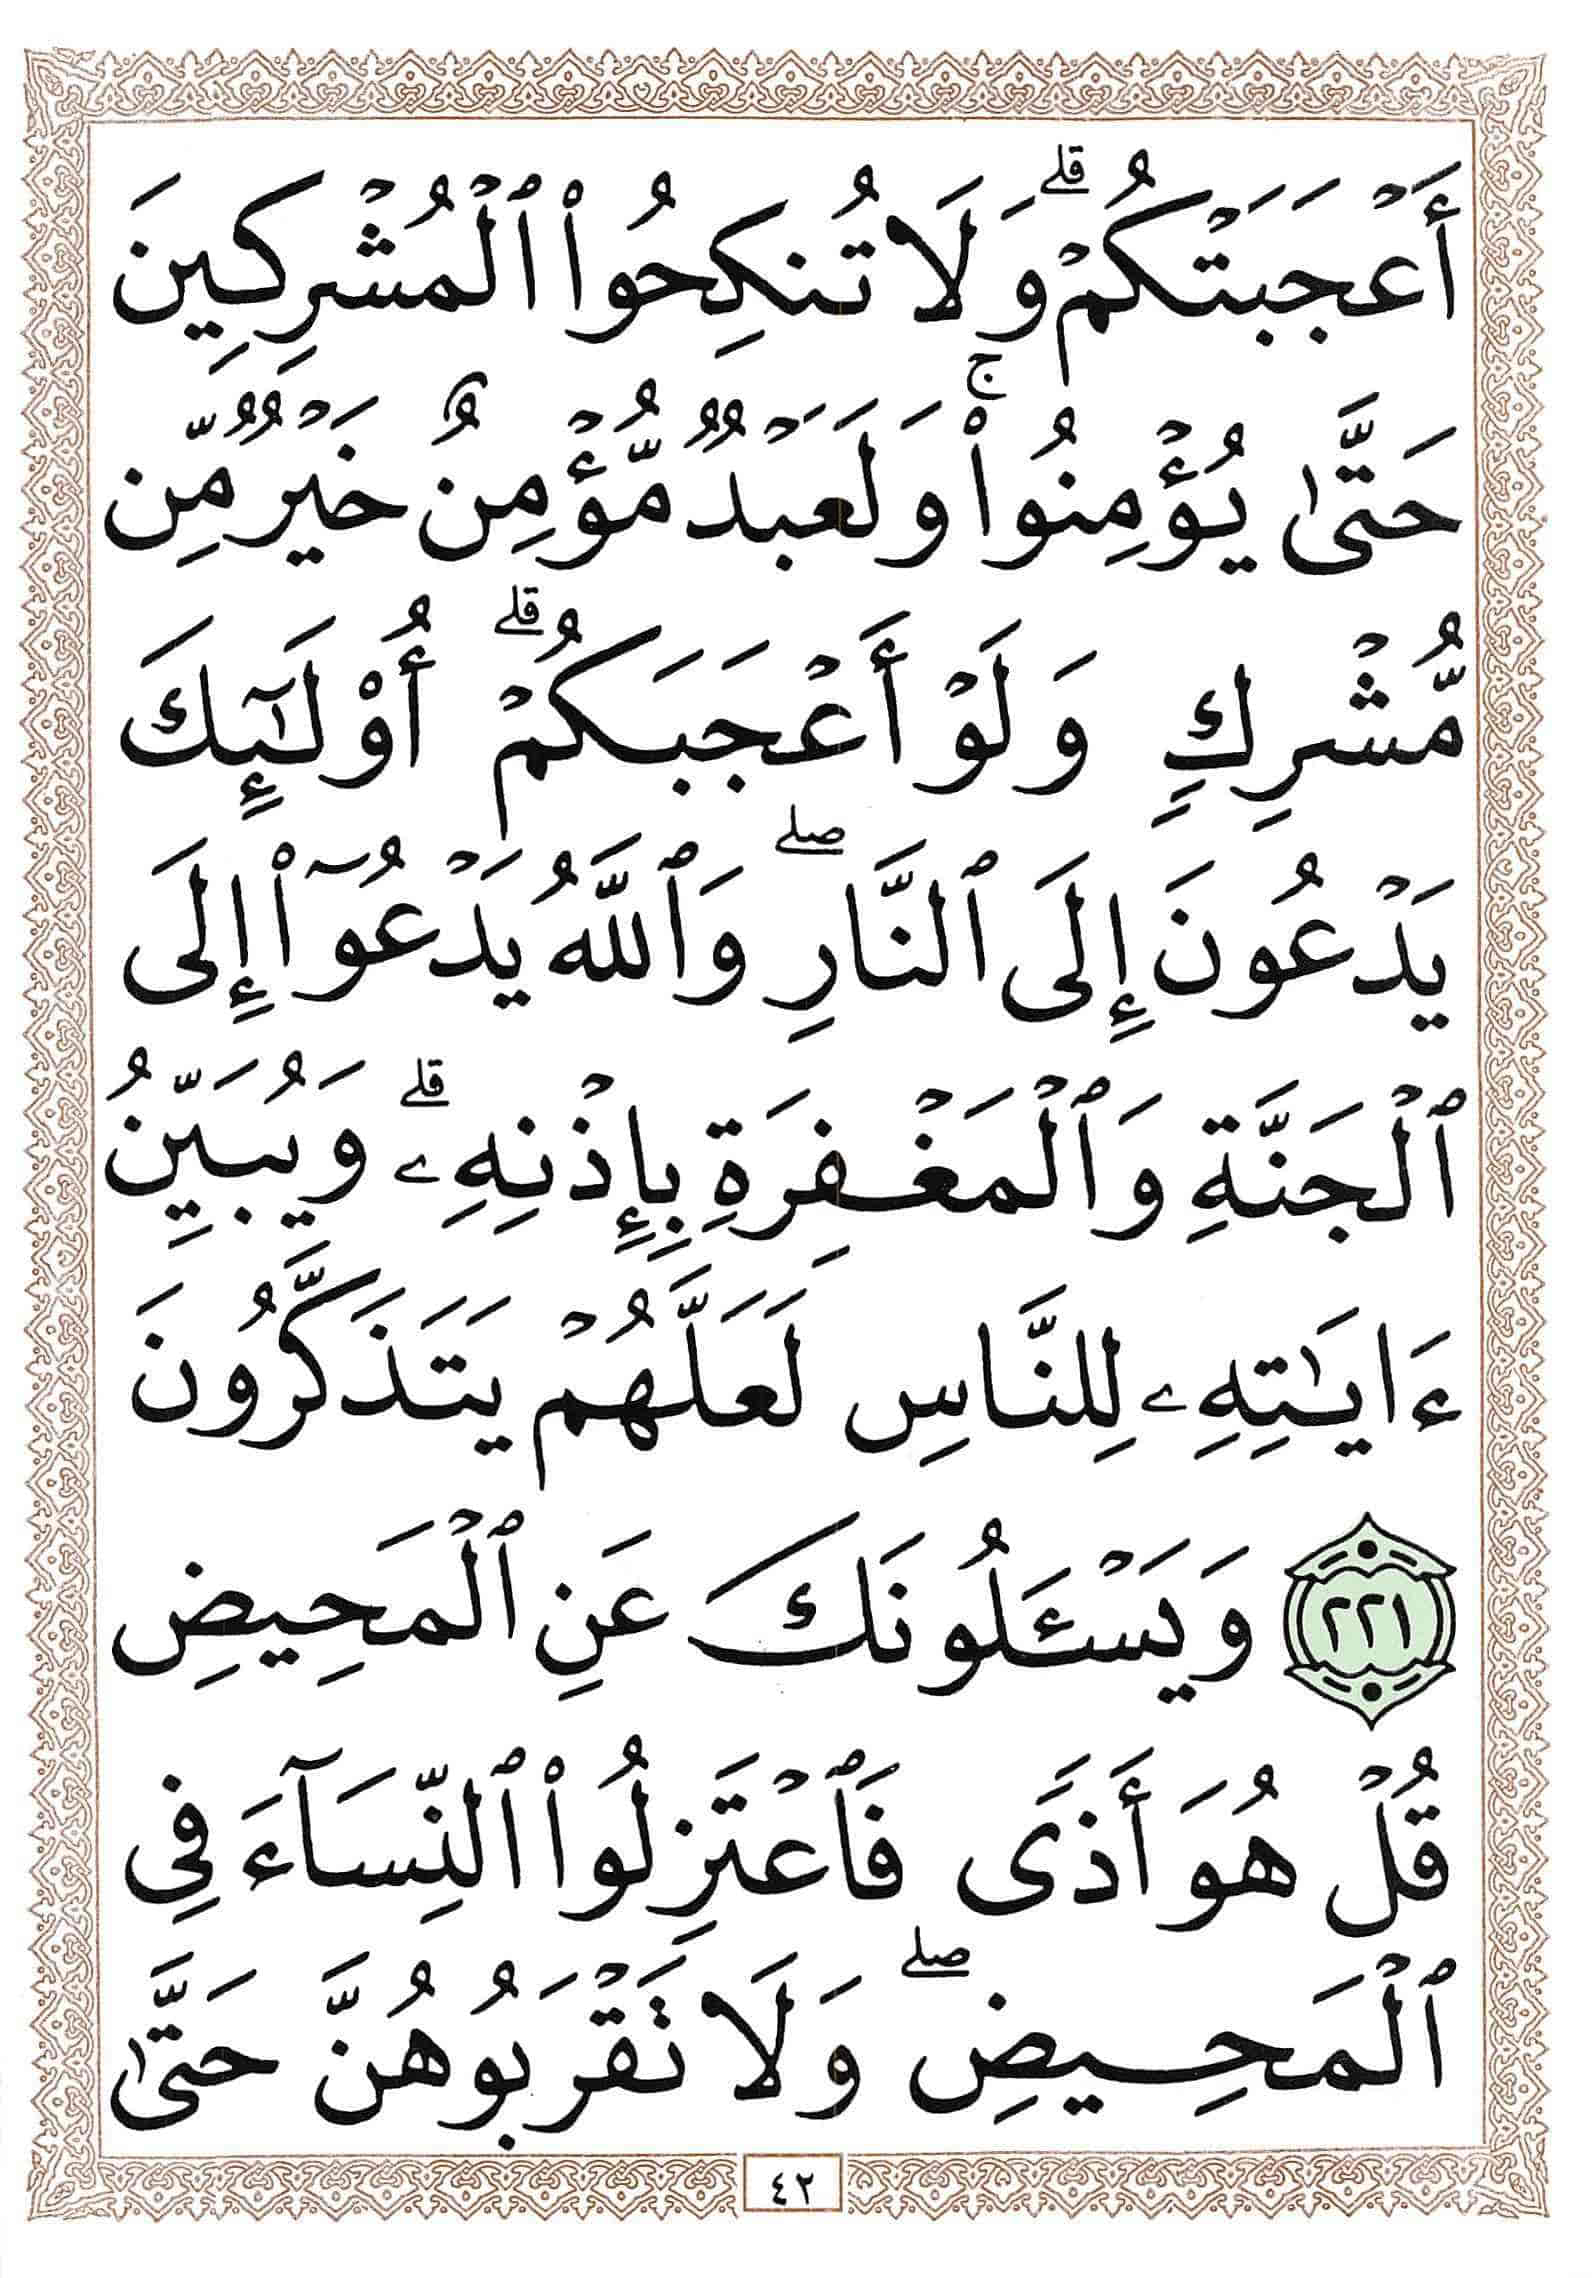 أَعۡجَبَتۡكُمۡۗ وَلَا تُنكِحُواْ ٱلۡمُشۡرِكِينَ
حَتَّىٰ يُؤۡمِنُواْۚ وَلَعَبۡدٞ مُّؤۡمِنٌ خَيۡرٞ مِّن
مُّشۡرِكٖ وَلَوۡ أَعۡجَبَكُمۡۗ أُوْلَٰٓئِكَ
يَدۡعُونَ إِلَى ٱلنَّارِۖ وَٱللَّهُ يَدۡعُوٓاْ إِلَى
ٱلۡجَنَّةِ وَٱلۡمَغۡفِرَةِ بِإِذۡنِهِۦۗ وَيُبَيِّنُ
ءَايَٰتِهِۦ لِلنَّاسِ لَعَلَّهُمۡ يَتَذَكَّرُونَ
٢٢١ وَيَسۡـَٔلُونَكَ عَنِ ٱلۡمَحِيضِ
قُلۡ هُوَ أَذٗى فَٱعۡتَزِلُواْ ٱلنِّسَآءَ فِي
ٱلۡمَحِيضِۖ وَلَا تَقۡرَبُوهُنَّ حَتَّىٰ
٤٢